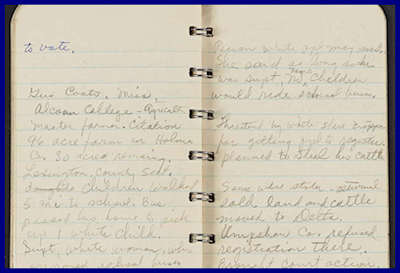 to vote.
Gus Coats. Miss.
Alcorn College - Agricult
master farmer. Citation
96 acre farm in Holmes
Co. 30 acres remaining.
Lexington, county seat.
daughte Children walked
5 mi to school. Bus
passed his home to pick
up 1 white child.
Supt. white woman, who
school buses
white
She said as long as she
was Supt. no Negro Children
would ride school buses.
Threatened by white
for getting to register.
planned to steal his cattle
Some were stolen.
sold land and cattle
moved to Delta.
Co. refused
registration there.
court action,